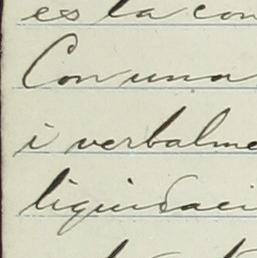 es la con
Con una
i verbalme
liquidaci